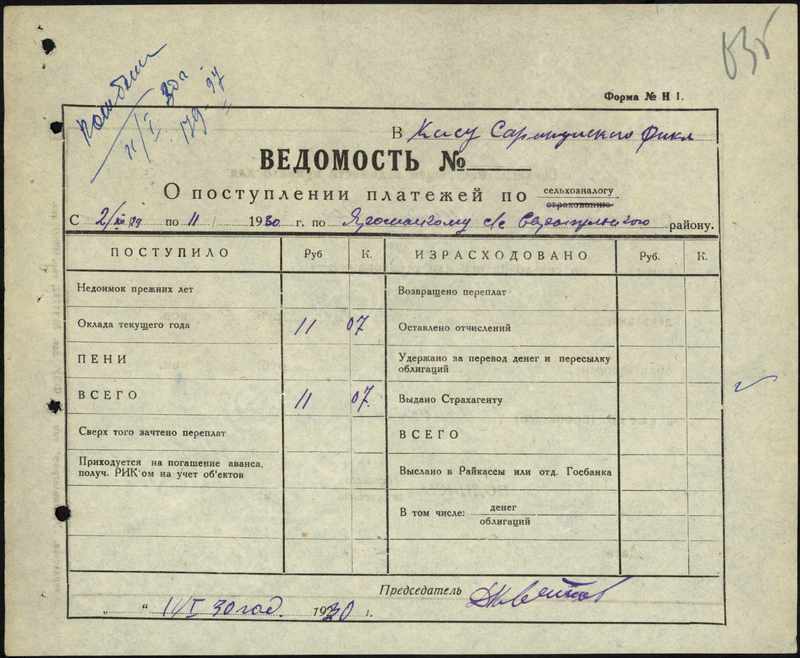 Форма № Н 1.
11/I 30г
179-97
В Кассу Сарапульского
ВЕДОМОСТЬ №
О поступлении платежей по сельхозналогу
страхованию
С 2/XII 29 по 11 1930 г. по с/с Сарапульского району.
ПОСТУПИЛО Руб К. ИЗРАСХОДОВАНО Руб. К.
Недоимок прежних лет Возвращено переплат
Оклада текущего года 11 07 Оставлено отчислений
ПЕНИ Удержано за перевод денег и пересылку
облигаций
ВСЕГО 11 07 Выдано Страхагенту
Сверх того зачтено переплат ВСЕГО
Приходуется на погашение аванса,
получ. РИК'ом на учет об'ектов Выслано в Райкассы или отд. Госбанка
В том числе: денег
облигаций
Председатель
„ “ 11/I 30 год. 1930 г.